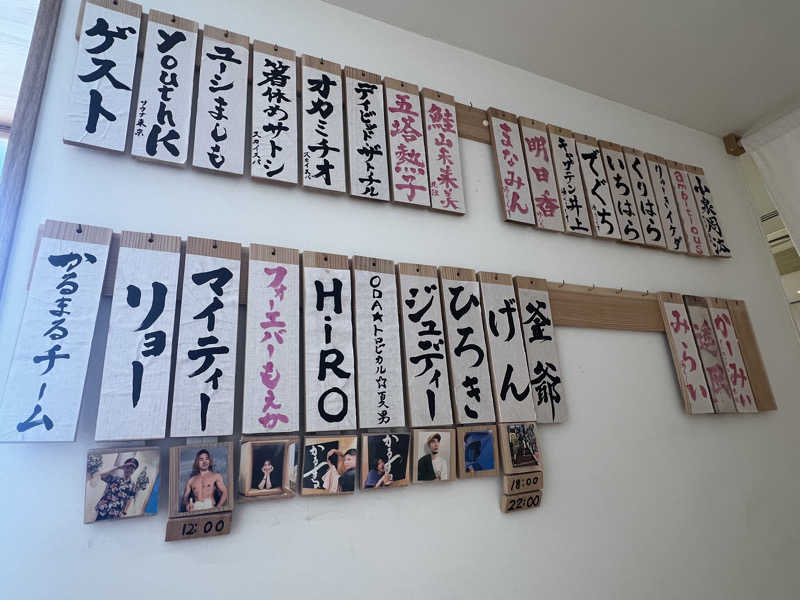 ゲスト
youthK
サウナ東京
ユーシましも
箸休めサトシ
スカイスパ
オカミチオ
スカイスパ
デイビッドザトナル
五塔熱子
鮭山未来美
まなみん
明日香
キャプテン井上
でぐち
いちはら
くりはら
りゅうきイケダ
ambitious
かるまるチーム
リョー
マイティー
フォーエバーもえか
HiRO
ODA★トロピカル☆夏男
ジュディー
ひろき
げん
釜爺
みらい
がーみぃ
かるまる
12:00
18:00
22:00